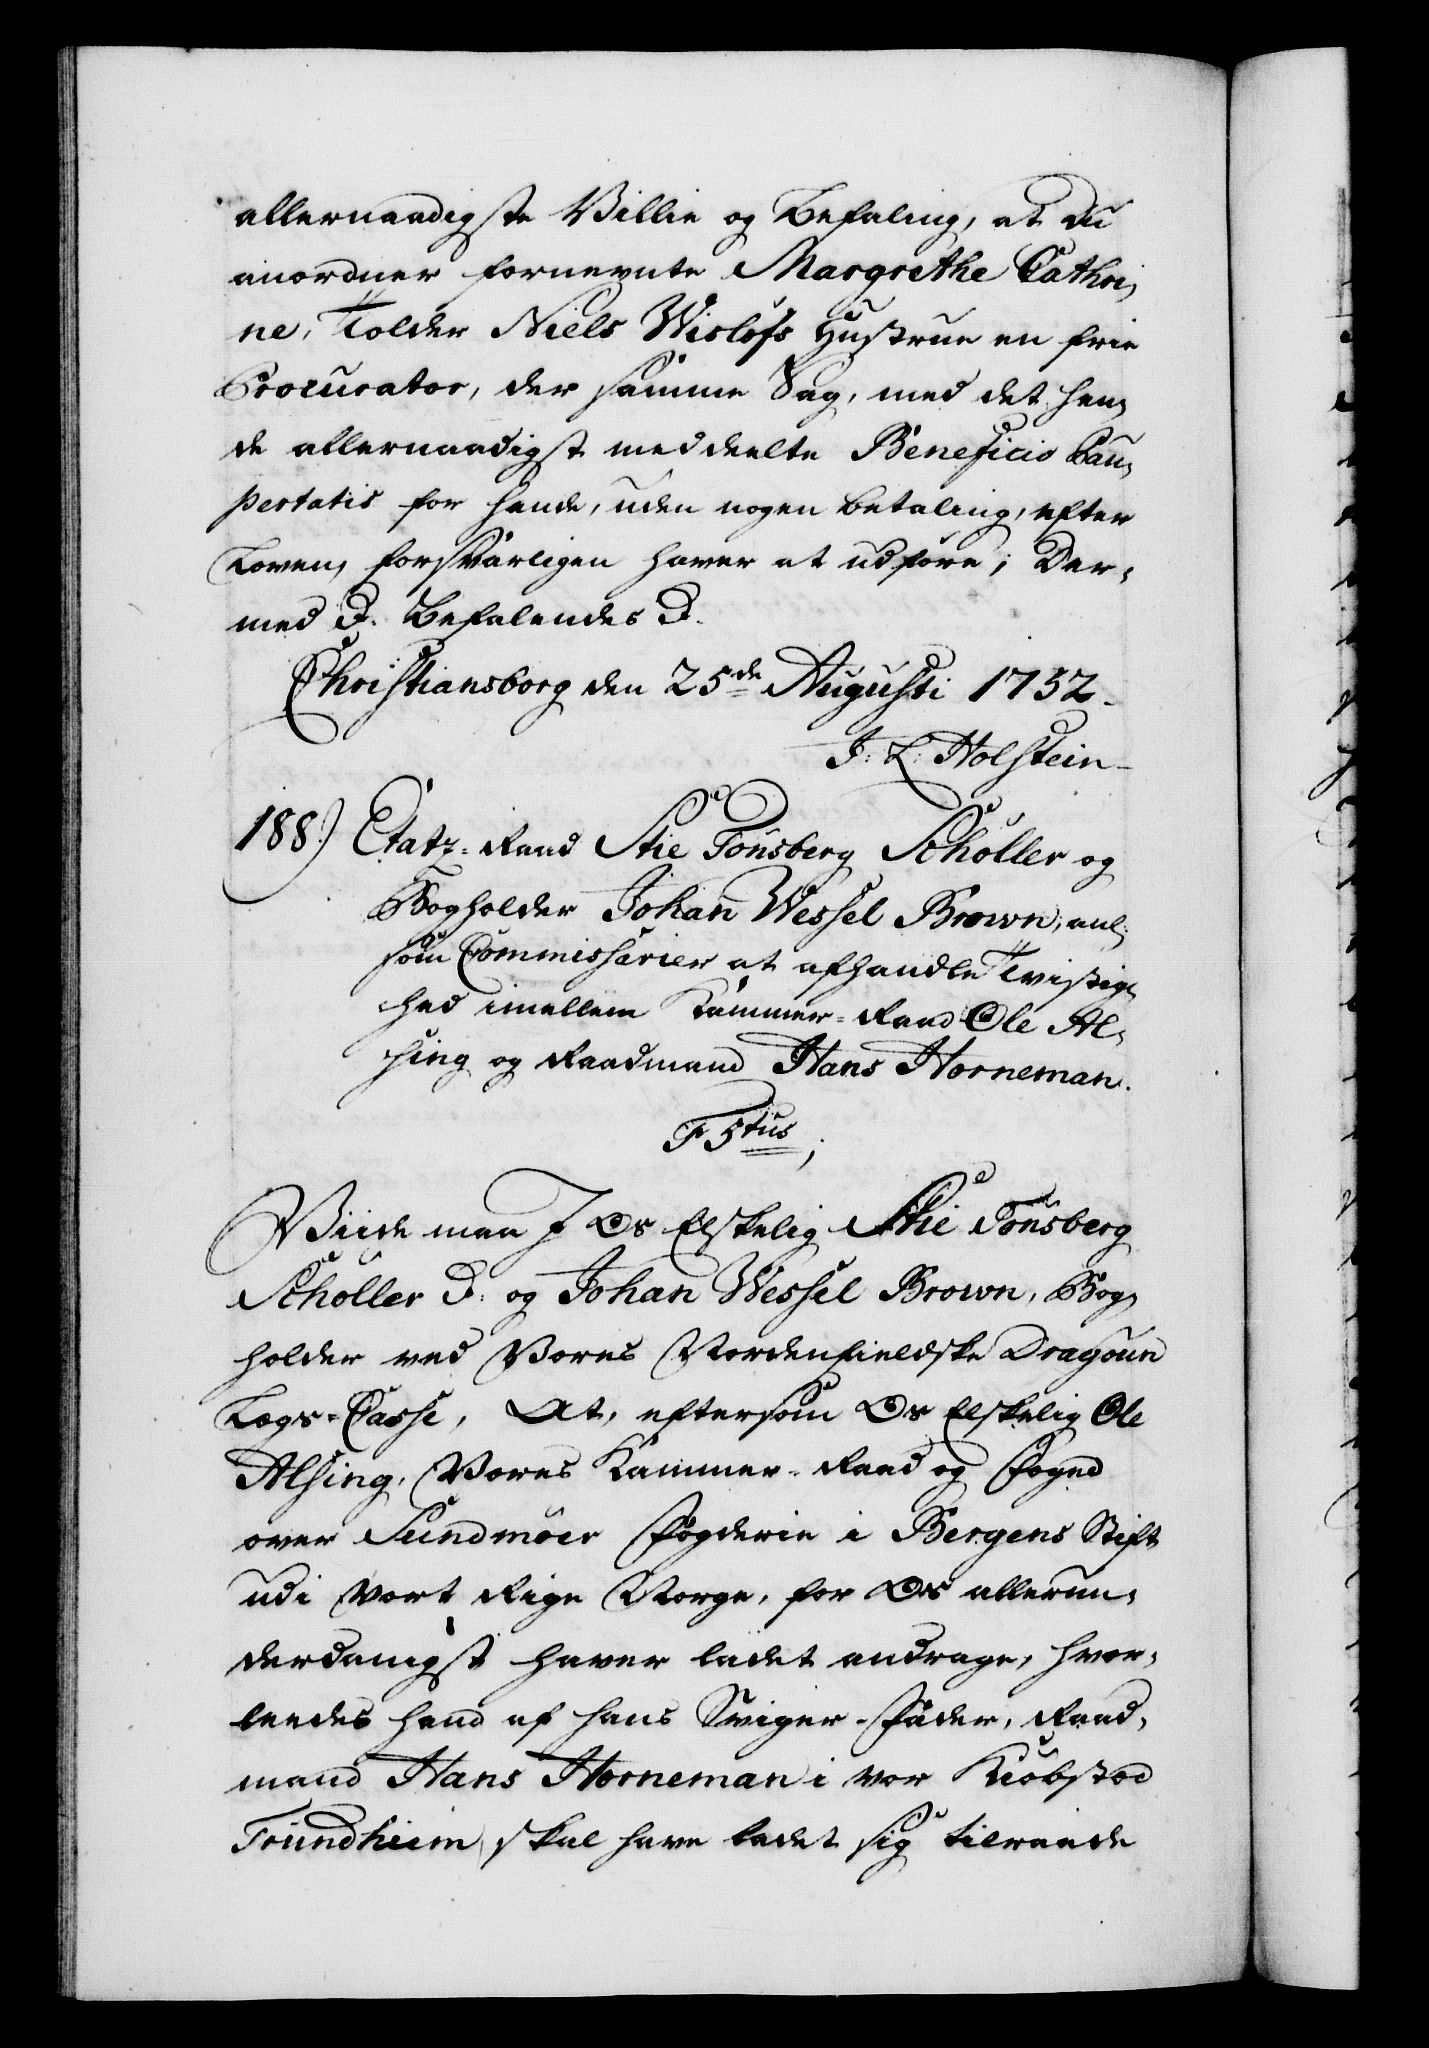 allernaadigste Villie og Befaling, at du
anordner fornevnte Margrethe Cathri,
ne, Tolder Niels Wisløfs Hustrue en frie
Procurator, der samme Sag, med det hen,
de allernaadigst meddeelte Beneficio Pau,
pertatis for hende, uden nogen betaling, efter
Loven, forsvarligen haver at udføre; Der,
med p. Befalendes p.
Christiansborg den 25de Augusti 1732.
J: L: Holstein
188.) Etatz-Raad Stie Tønsberg Schøller og
Bogholder Johan Wessel Brown, anl:
som Commissarier at afhandle Tvistig,
hed imellem Kammer-Raad Ole Al,
sing og Raadmand Hans Horneman.
F 5tus;
Viide maa I Os Elskelig Stie Tønsberg
Schøller p. og Johan Wessel Brown, Bog,
holder ved Vores Nordenfieldske Dragoun
Lægs-Casse, At, eftersom Os Elskelig Ole
Alsing, Vores Kammer-Raad og Foged
over Sundmøer Fogderie i Bergens Stift
udi Vort Rige Norge, for Os allerun,
derdanigst haver ladet andrage, hvor,
leedes hand af hans Sviger-Fader, Raad,
mand Hans Horneman i vor Kiøbstæd
Trundhiem, skal have ladet sig tilraade